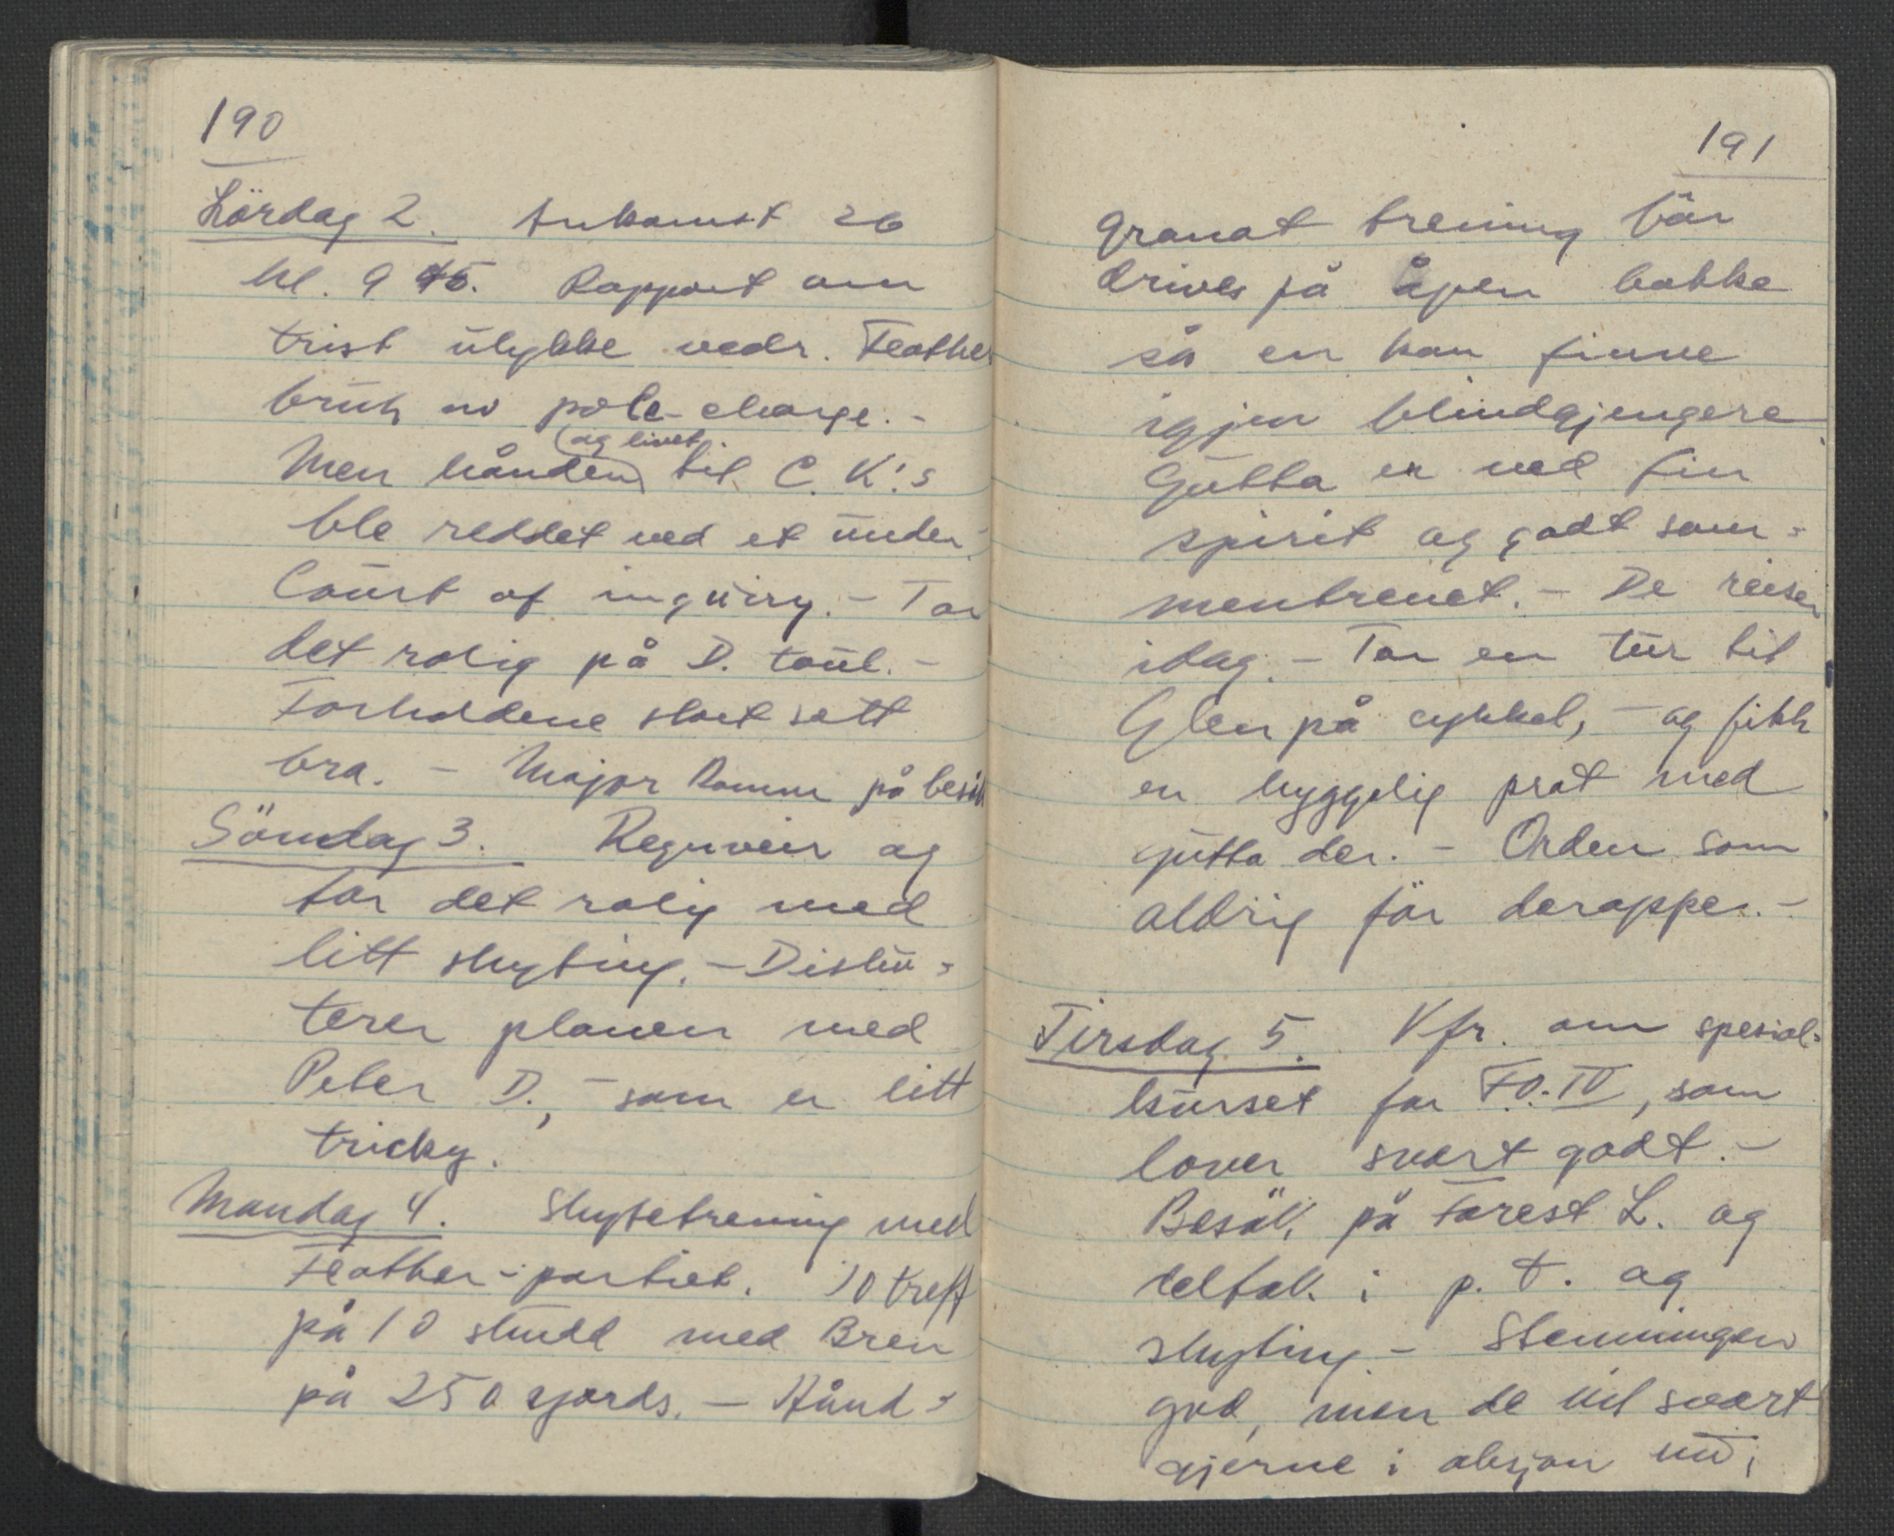 190
Lördag 2. Ankomst 26
kl. 9 45. Rapport om
trist ulykke vedr. Feather
bruk av pole-charge. -
(og livet)
Men hånden til C. K.'s
ble reddet ved et under.
Court of inquiry. - Tar
det rolig på D. toul. -
Forholdene stort sett
bra. - Major Ramm på besök
Söndag 3. Regnveir og
tar det rolig med
litt skyting. - Disku-
terer planen med
Peter D., - som er litt
tricky.
Mandag 4. Skytetrening med
Feather-partiet. 10 treff
på 10 skudd med Bren
på 250 yards. - Hånd-
191
granat trening bör
drives på åpen bakke
så en kan finne
igjen blindgjengere.
Gutta er ved fin
spirit og godt sam-
mentrenet. - De reiser
idag. - Tar en tur til
Glen på cykkel, - og fikk
en hyggelig prat med
gutta der. - Orden som
aldrig för deroppe. -
Tirsdag 5. Kfr. om spesial-
kurset for FO. IV, som
lover svært godt. -
Besök på Forest L. og
deltok i p. t. og
skyting - Stemningen
god, men de vil svært
gjerne i aksjon nu,